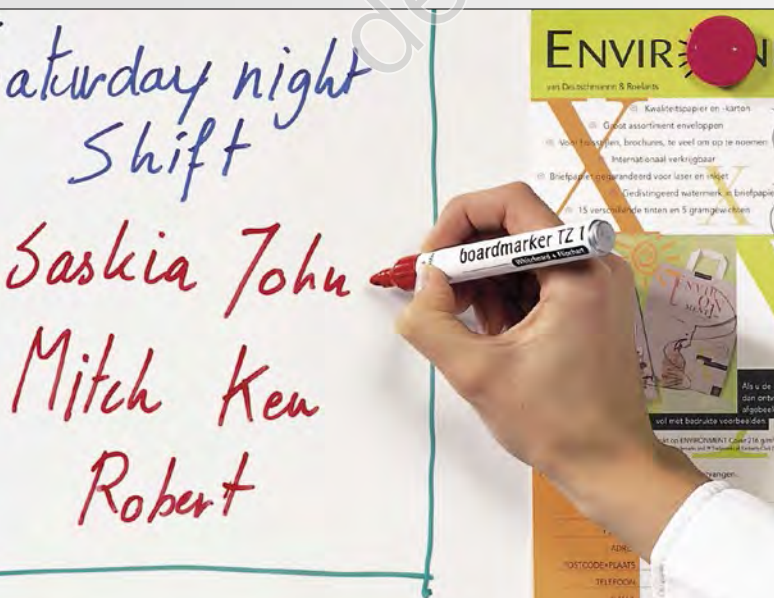 aturday night
Shift
Saskia John
Mitch Ken
Robert
boardmarker TZ 1
Whiteboard + Flipchart
ENVIR N
van Deutschmann & Roelants
Kwaliteitspapier en -karton
Groot assortiment enveloppen
brochures, te veel om op te noemen
Internationaal verkrijgbaar
Briefpapier gegarandeerd voor laser en inkjet
Gedistingeerd watermerk in briefpapie
15 verschillende tinten en 5 gramgewichten
ENVIR
ON
MENT
Als u de
dan ontv
afgebeel
vol met bedrukte voorbeelden
op ENVIRONMENT Cover 216 g/m
ADRE
POSTCODE+PLAATS
TELEFOON
de